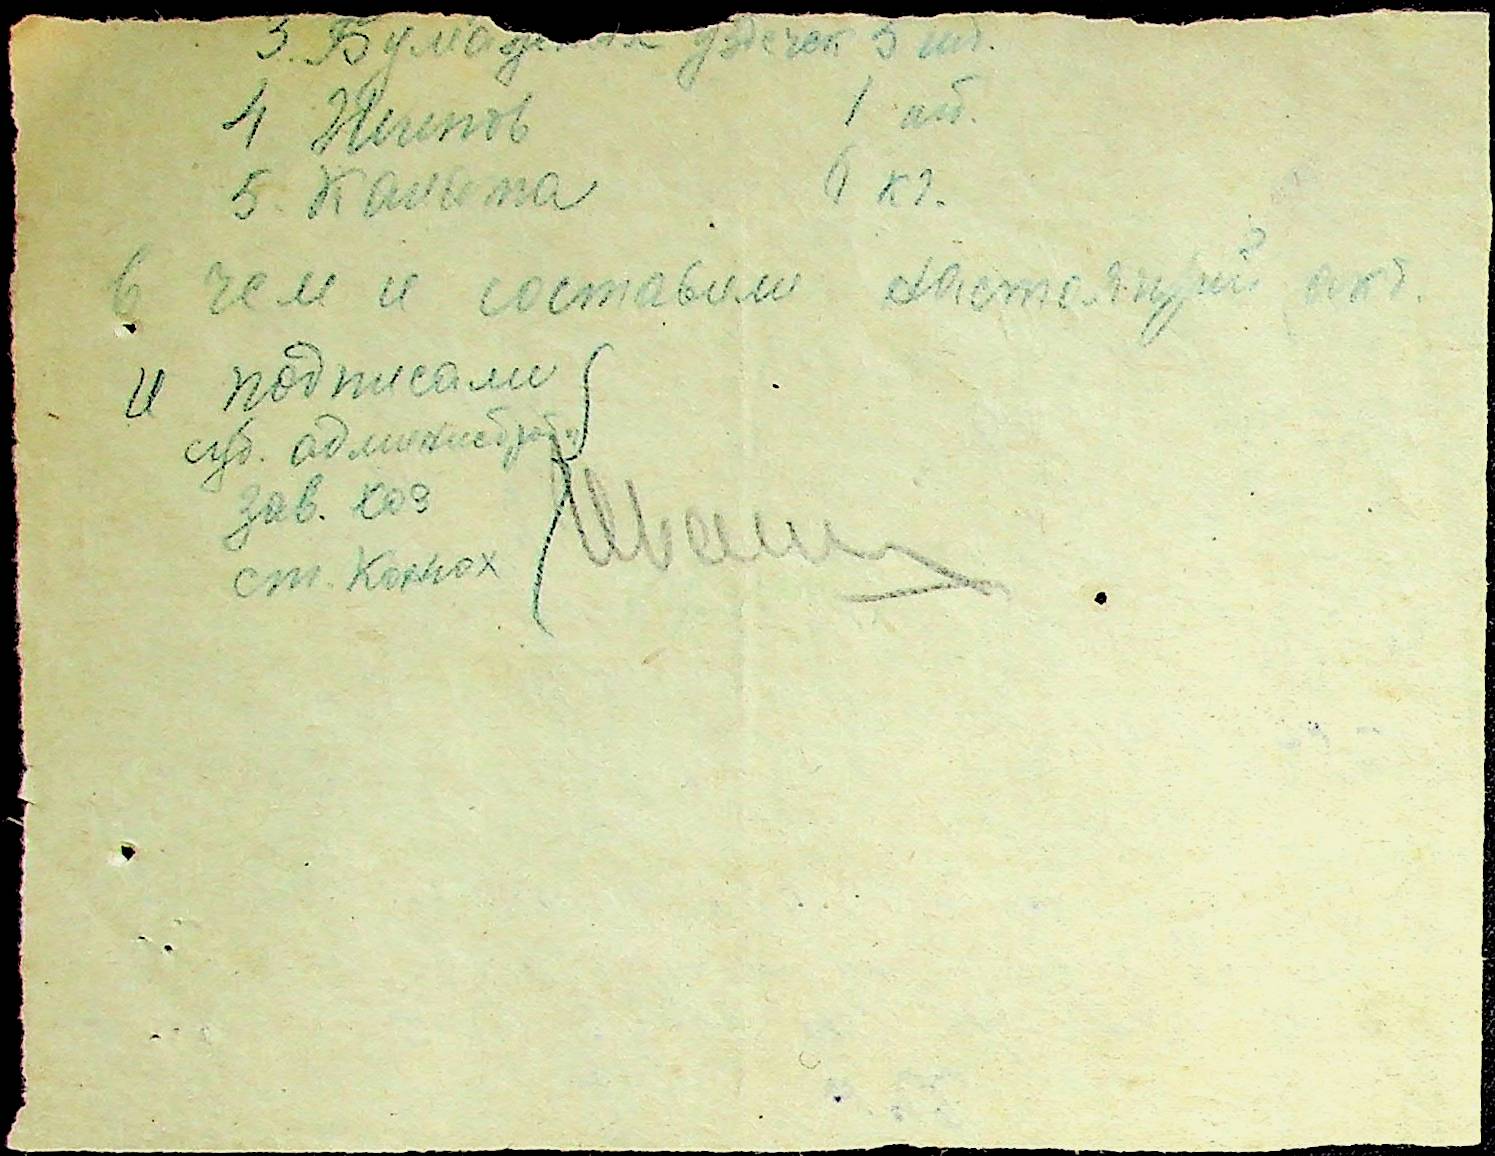 3. Бумажных уздечек 5 шт.
4 1 шт.
5. Каната 6 кг.
в чем и составили настоящий акт.
и подписали
суд. администрат.
зав. хоз
ст. Конюх